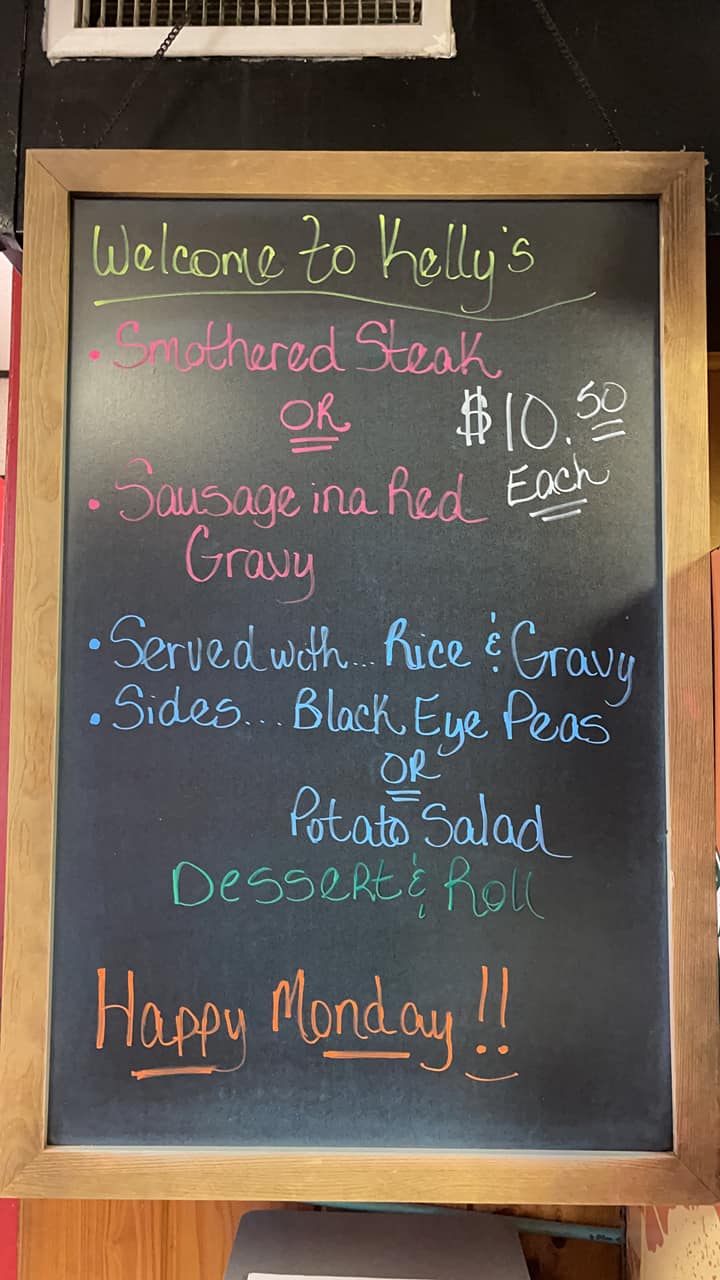 Welcome to Kelly's
• Smothered Steak
OR
$10.50
Each
• Sausage in a Red
Gravy
• Served with... Rice & Gravy
• Sides... Black Eye Peas
OR
Potato Salad
Dessert & Roll
Happy Monday!!